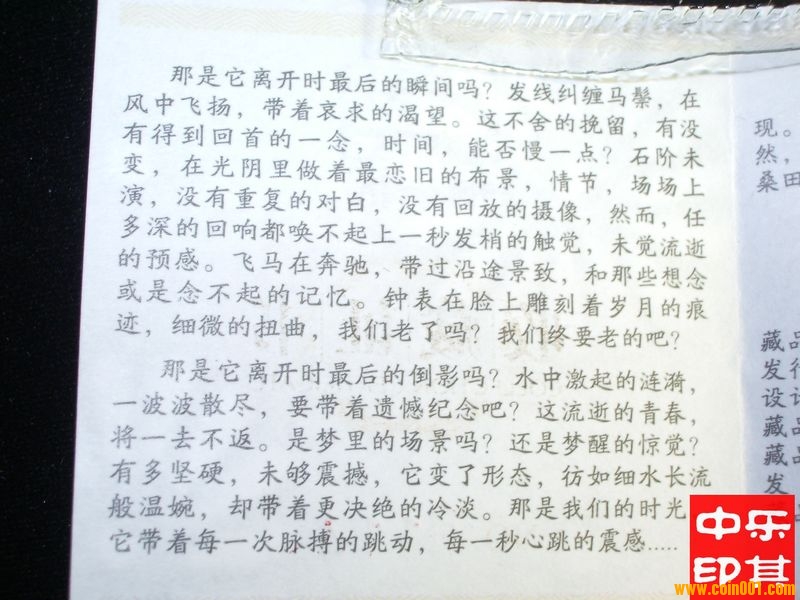 那是它离开时最后的瞬间吗？发线纠缠马鬃，在
风中飞扬，带着哀求的渴望。这不舍的挽留，有没
有得到回首的一念，时间，能否慢一点？石阶未
变，在光阴里做着最恋旧的布景，情节，场场上
演，没有重复的对白，没有回放的摄像，然而，任
多深的回响都唤不起上一秒发梢的触觉，未觉流逝
的预感。飞马在奔驰，带过沿途景致，和那些想念
或是念不起的记忆。钟表在脸上雕刻着岁月的痕
迹，细微的扭曲，我们老了吗？我们终要老的吧？
那是它离开时最后的倒影吗？水中激起的涟漪，
一波波散尽，要带着遗憾纪念吧？这流逝的青春，
将一去不返。是梦里的场景吗？还是梦醒的惊觉？
有多坚硬，未够震撼，它变了形态，彷如细水长流
般温婉，却带着更决绝的冷淡。那是我们的时光
它带着每一次脉搏的跳动，每一秒心跳的震感.....
现。
然，
桑田
藏品
发行
设计
藏品
藏品
发
中乐
印其
www.coin001.com